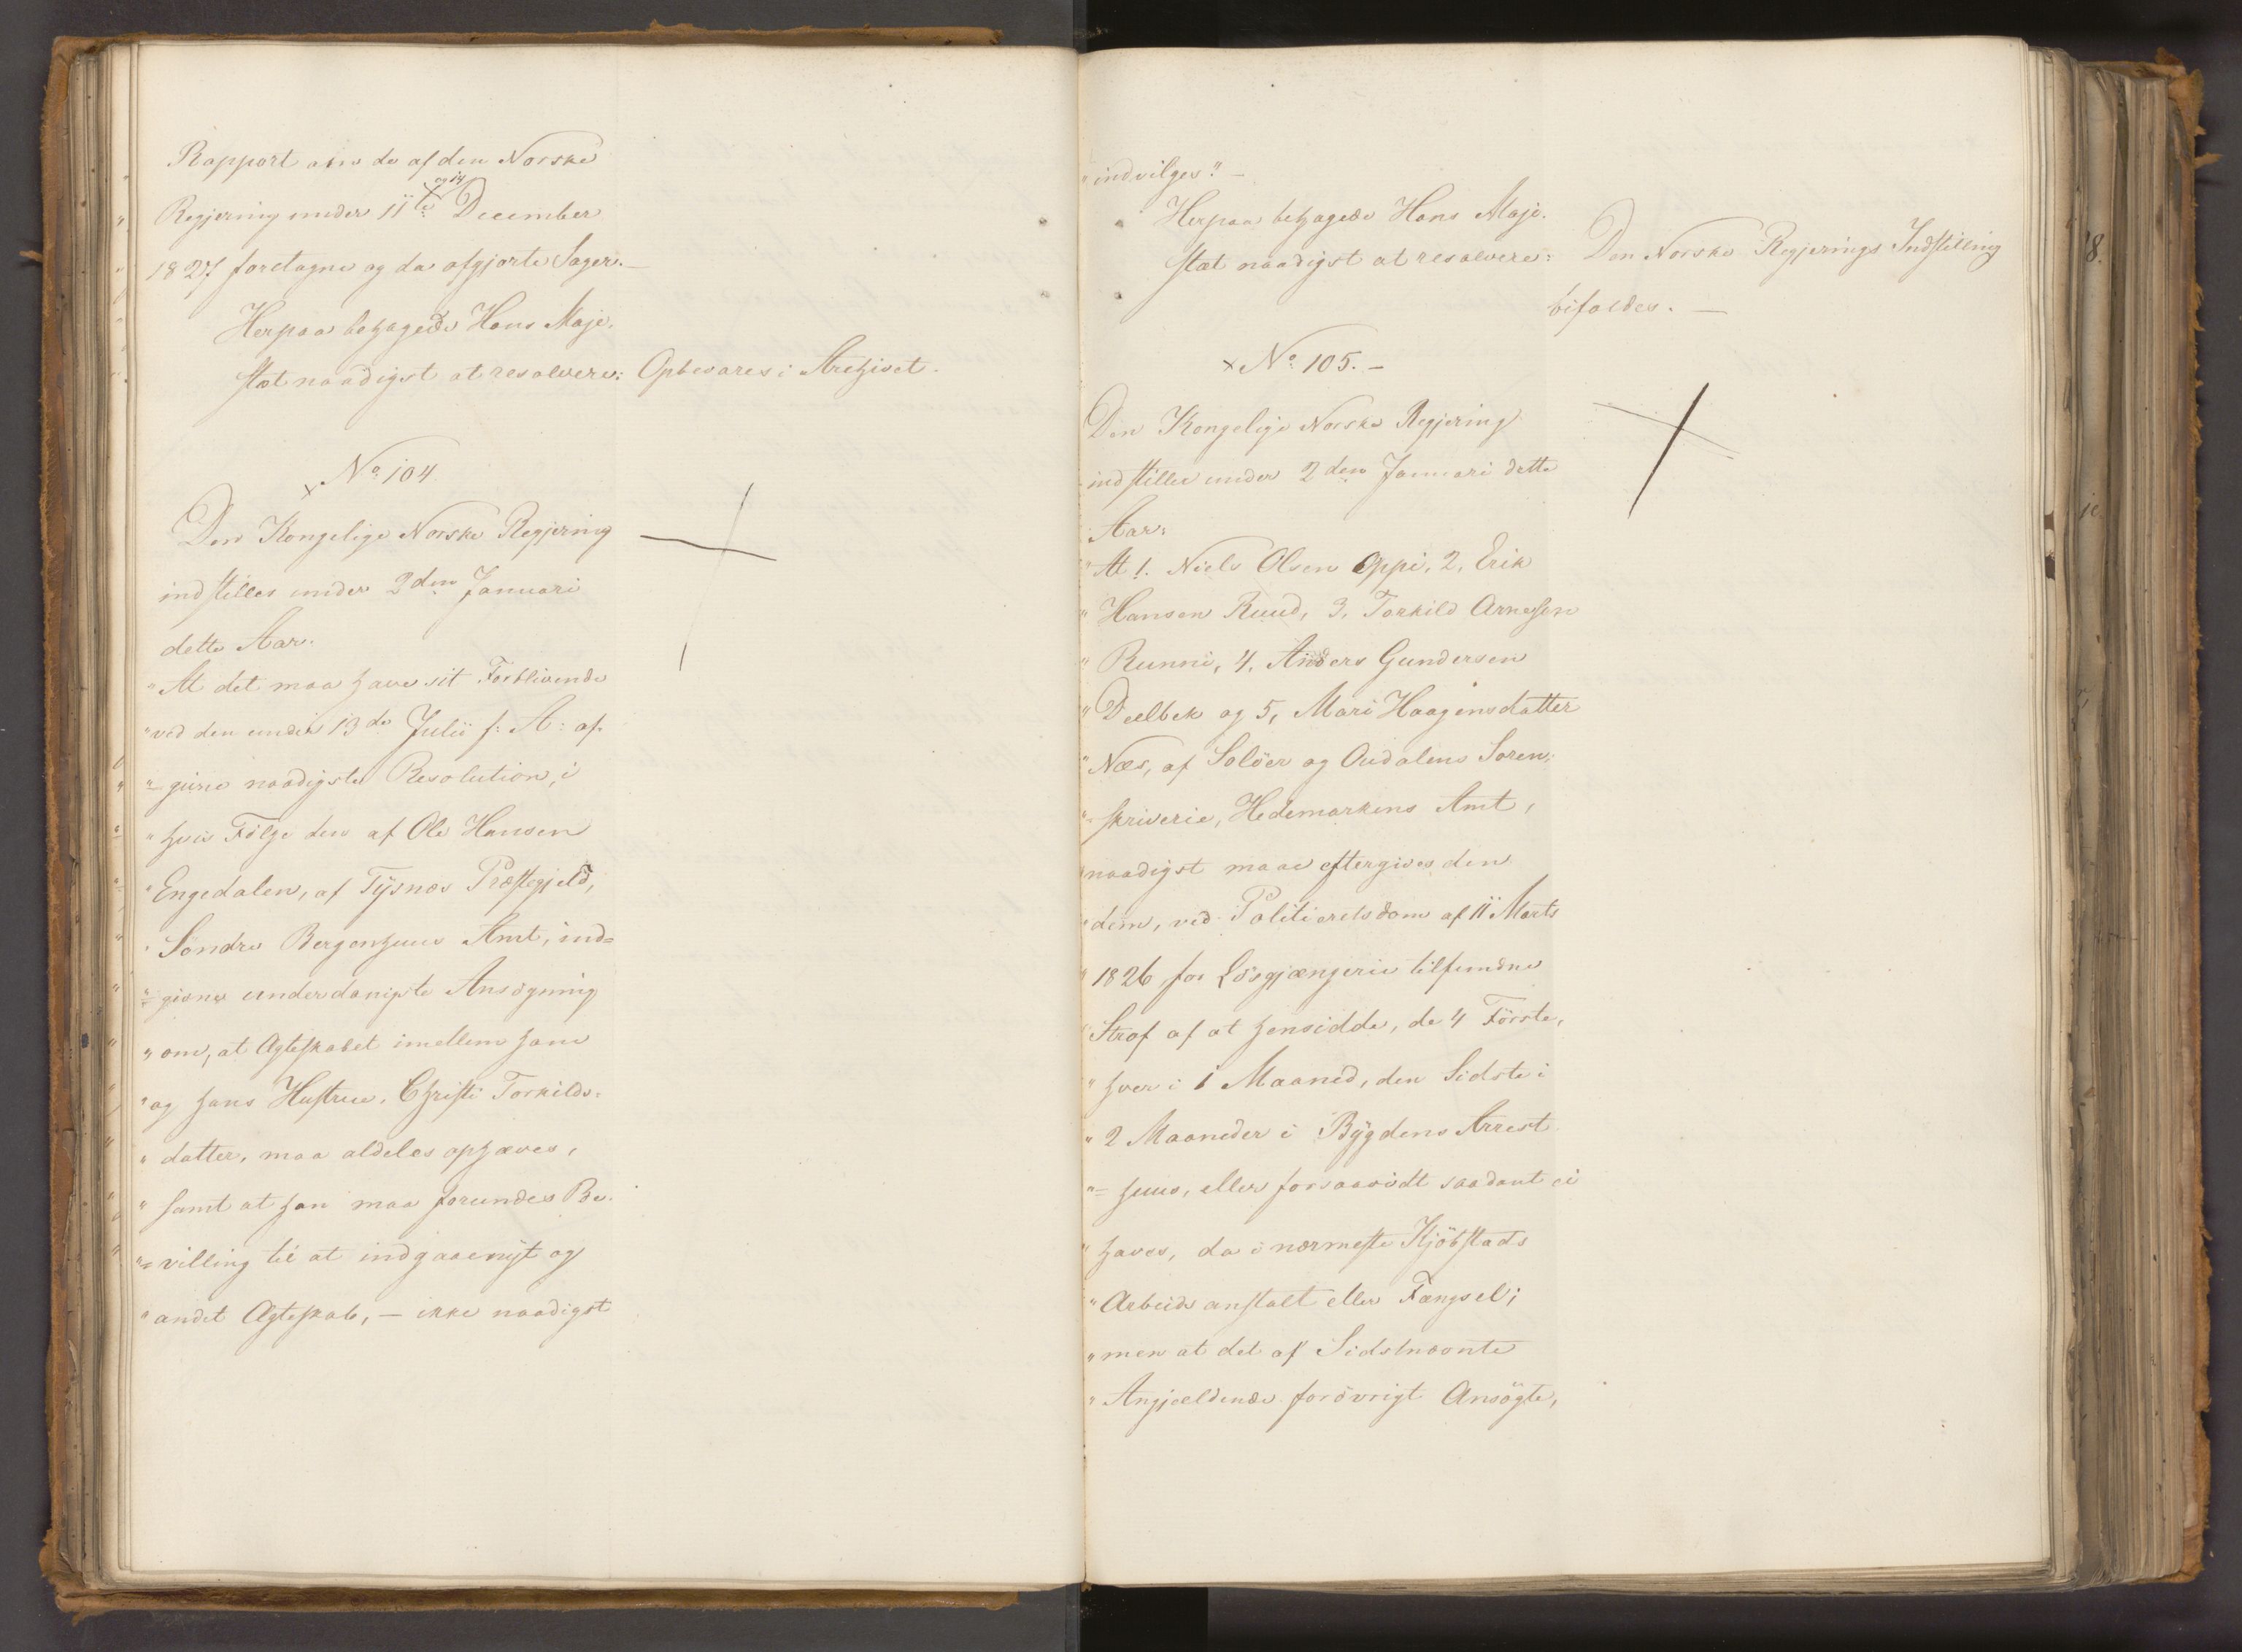 Rapport om de af den Norske
og 14
Regjering under 11te December
1827 foretagne og da afgjorte Sager. —
Herpaa behagede Hans Maje-
stæt naadigst at resolvere: Opbevares i Archivet.
× No 104.
Den Kongelige Norske Regjering
indstilles under 2den Januari
dette Aar.
"At det maa have sit Forblivende
"ved den under 13de Julii f: A: af-
"=givne naadigste Resolution, i
"hvis Følge den af Ole Hansen
"Engedalen, af Tysnæs Præstegjeld,
"Söndre Bergenhuus Amt, ind=
"=givne underdanigste Ansögning
"om, at Ægteskabet imellem ham
"og hans Hustrue, Christi Torkilds-
"datter, maa aldeles ophæves,
"samt at han maa forundes Be-
"=villing til at indgaae nyt og
"andet Ægteskab, — ikke naadigst
"indvilges." —
Herpaa behagede Hans Maje-
stæt naadigst at resolvere: Den Norske Regjerings Indstilling
bifaldes. —
× No 105. —
Den Kongelige Norske Regjering
indstiller under 2den Januari dette
Aar:
"At 1. Niels Olsen Oppi, 2, Erik
"Hansen Ruud, 3, Torkild Arnessen
"Runni, 4, Anders Gundersen
"Deelbek og 5, Mari Haagensdatter
"Næs, af Solöer og Oudalens Soren-
"=skriverie, Hedemarkens Amt,
"naadigst maae eftergives den
"dem, ved Politieretsdom af 11 Marts
"1826 for Lösgjængerie tilfundne
"Straf af at hensidde, de 4 Förste,
"hver i 1 Maaned, den Sidste i
"2 Maaneder i Bygdens Arrest
"=huus, eller forsaavidt saadant ei
"haves, da i nærmeste Kjöbstads
"Arbeidsanstalt eller Fængsel;
"men at det af Sidstnævnte
"Angjældende forövrigt Ansögte,